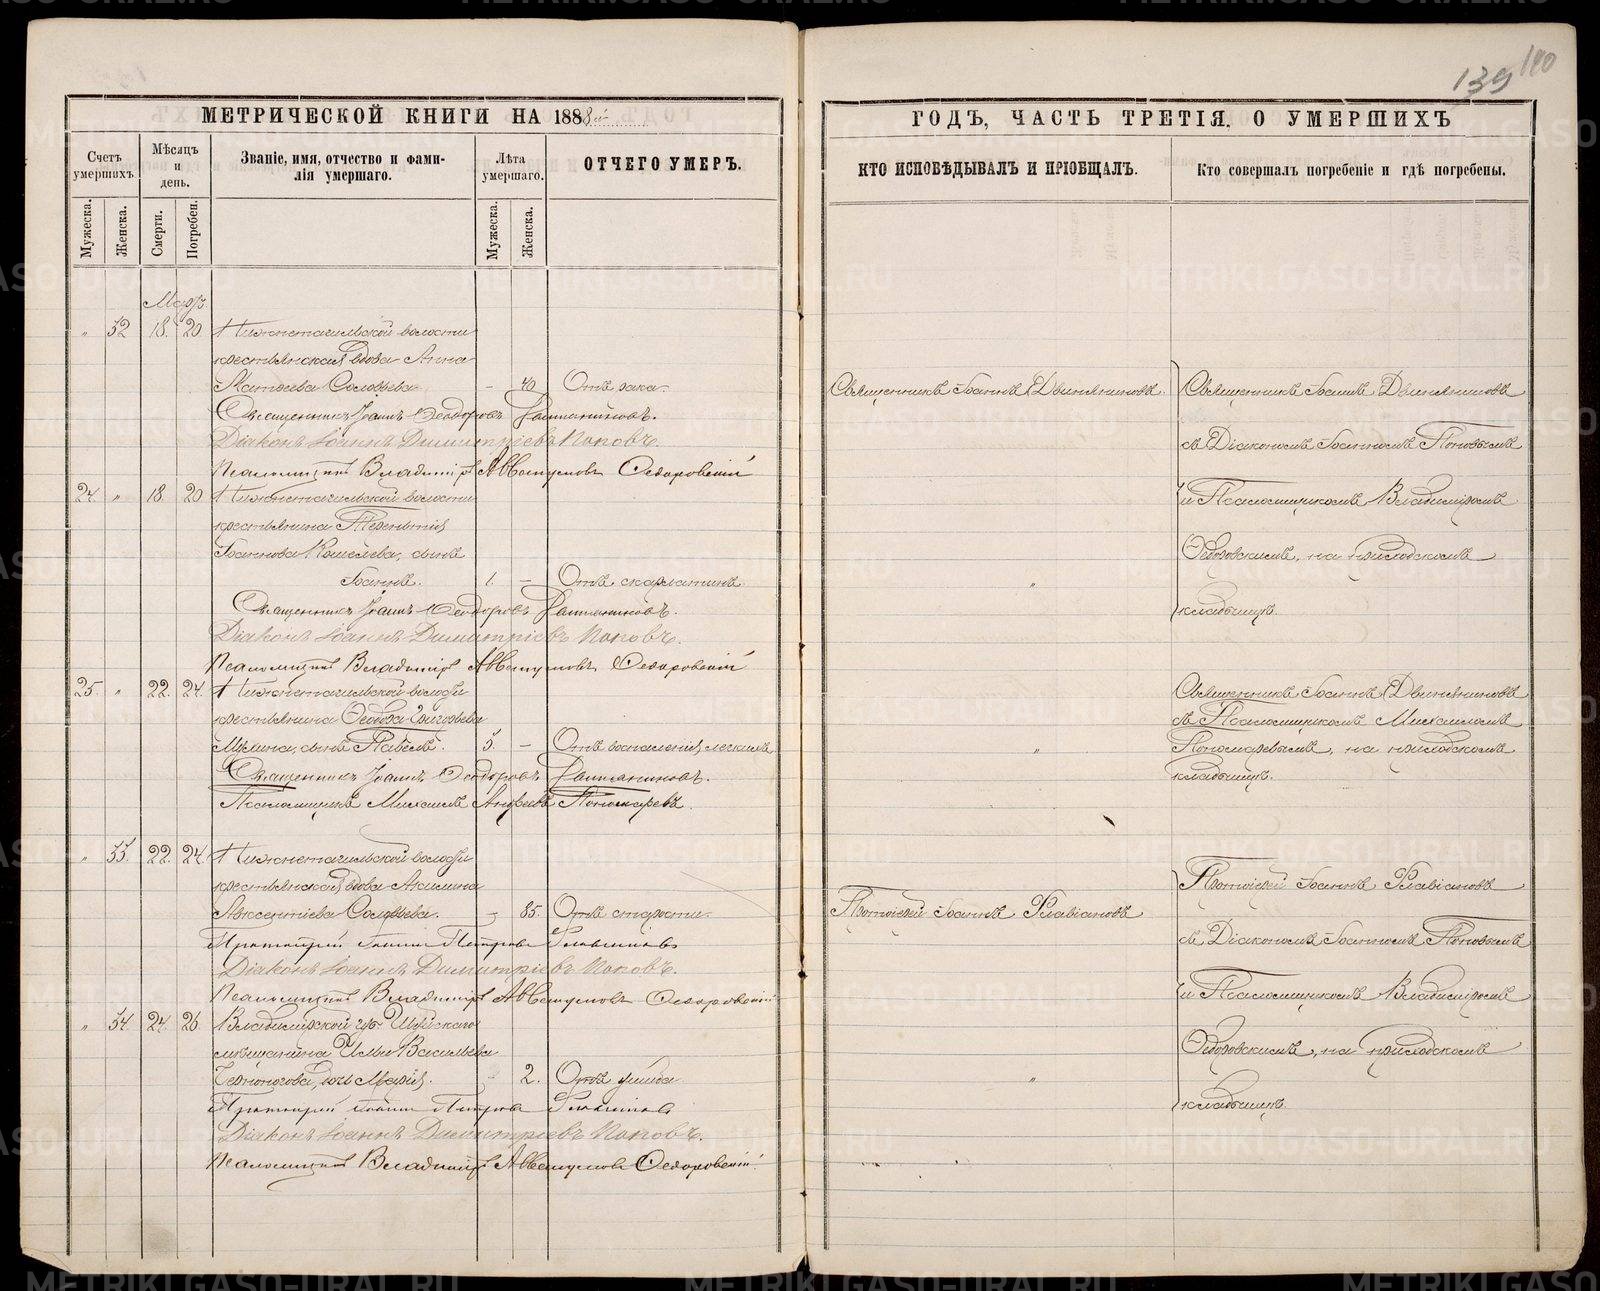 139 140
МЕТРИЧЕСКОЙ КНИГИ НА 1888й
ГОДЪ, ЧАСТЬ ТРЕТІЯ, О УМЕРШИХЪ
Счетъ умершихъ.
Мѣсяцъ и день.
Званіе, имя, отчество и фами-
лія умершаго.
Лѣта умершаго.
ОТЧЕГО УМЕРЪ.
КТО ИСПОВѢДЫВАЛЪ И ПРІОБЩАЛЪ.
Кто совершалъ погребеніе и гдѣ погребены.
Мужеска.
Женска.
Смерти.
Погребен.
Мужеска.
Женска.
Мартъ.
" 32 18. 20 Нижнетагильской волости
крестьянская вдова Анна
Матѳеева Соловьева. - 40 Отъ рака.
Священникъ Іоаннъ Двиняниновъ.
Священникъ Іоаннъ Двиняниновъ
Священникъ Іоаннъ Ѳеодоровъ Двиняниновъ.
Діаконъ Іоаннъ Димитріевъ Поповъ.
съ Діакономъ Іоанномъ Поповымъ
Псаломщикъ Владиміръ Аввакумовъ Ѳедоровскій
24. " 18. 20 Нижнетагильской волости
и Псаломщикомъ Владиміромъ
крестьянина Терентія
Іоаннова Кошелева, сынъ
Ѳедоровскимъ, на приходскомъ
Іоаннъ. 1. - Отъ скарлатины.
"
кладбищѣ.
Священникъ Іоаннъ Ѳеодоровъ Двиняниновъ.
Діаконъ Іоаннъ Димитріевъ Поповъ.
Псаломщикъ Владиміръ Аввакумовъ Ѳедоровскій
25. " 22. 24. Нижнетагильской волости
Священникъ Іоаннъ Двиняниновъ
крестьянина Ѳеодора Григорьева
съ Псаломщикомъ Михаиломъ
сынъ Павелъ. 5. - Отъ воспаленія легкихъ
"
Пономаревымъ, на приходскомъ
кладбищѣ.
Священникъ Іоаннъ Ѳеодоровъ Двиняниновъ.
Псаломщикъ Михаилъ Андреевъ Пономаревъ.
" 33. 22. 24. Нижнетагильской волости
крестьянская вдова Акилина
Протоіерей Іоаннъ Флавіановъ
Авксентіева Соловьева. - 85. Отъ старости.
Протоіерей Іоаннъ Флавіановъ
Протоіерей Іоаннъ Петровъ Флавіановъ
съ Діакономъ Іоанномъ Поповымъ
Діаконъ Іоаннъ Димитріевъ Поповъ.
Псаломщикъ Владиміръ Аввакумовъ Ѳедоровскій
и Псаломщикомъ Владиміромъ
" 34. 24. 26. Владимірской губ. Шуйскаго
мѣщанина Ильи Васильева
Ѳедоровскимъ, на приходскомъ
Черноногова, дочь Марія. - 2. Отъ ушиба.
"
кладбищѣ.
Протоіерей Іоаннъ Петровъ Флавіановъ
Діаконъ Іоаннъ Димитріевъ Поповъ.
Псаломщикъ Владиміръ Аввакумовъ Ѳедоровскій.
METRIKI.GASO-URAL.RU